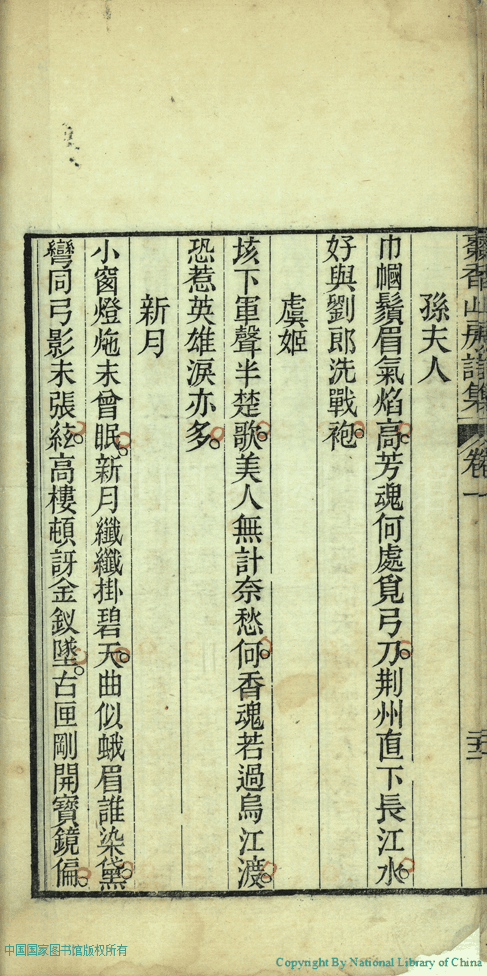 香山房詩集 卷一
孫夫人
巾幗鬚眉氣焰高。芳魂何處覓弓刀。荆州直下長江水。
好與劉郎洗戰袍。
虞姬
垓下軍聲半楚歌。美人無計奈愁何。香魂若過烏江渡。
恐惹英雄淚亦多。
新月
小窗燈灺未曾眠。新月纖纖掛碧天。曲似蛾眉誰染黛。
彎同弓影未張絃。高樓頓訝金釵墜。古匣剛開寶鏡偏。
中国国家图书馆版权所有
Copyright By National Library of China